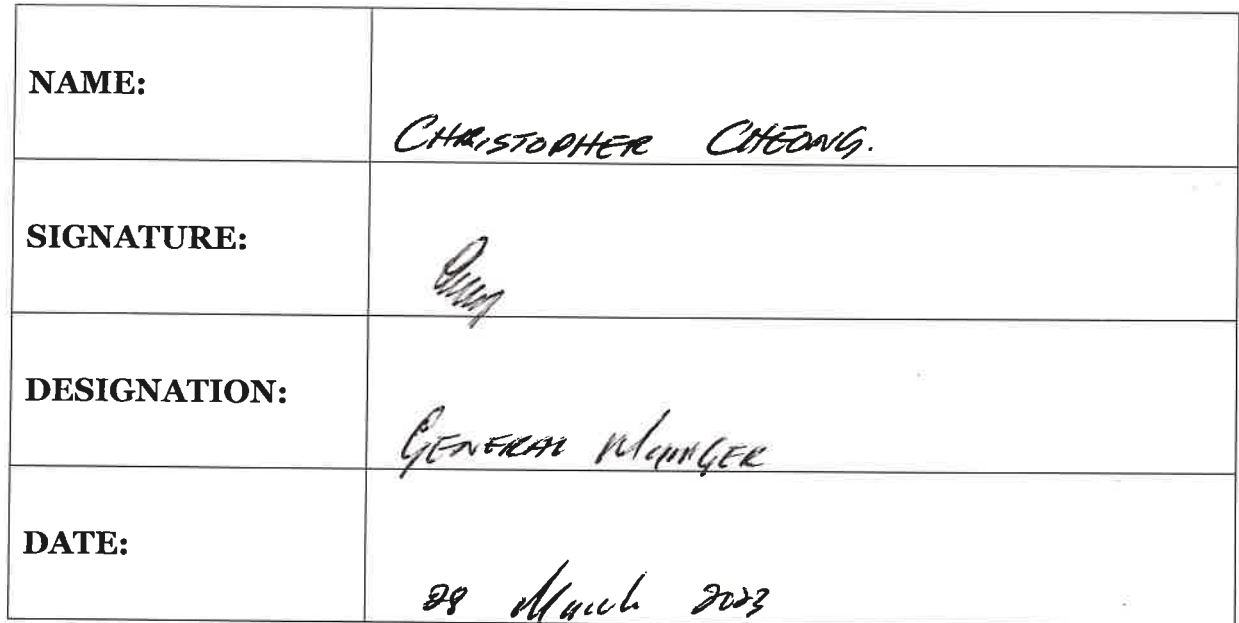 NAME: CHRISTOPHER CHEONG.
SIGNATURE:
DESIGNATION: GENERAL MANAGER
DATE: 28 March 2023